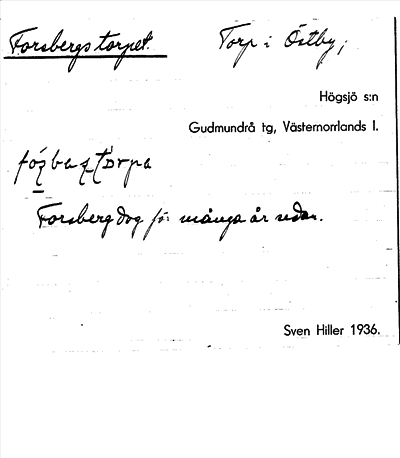 Forsbergstorpet. Torp i Östby;
Högsjö s:n
Gudmundrå tg, Västernorrlands l.
Forsberg dog för många år sedan.
Sven Hiller 1936.